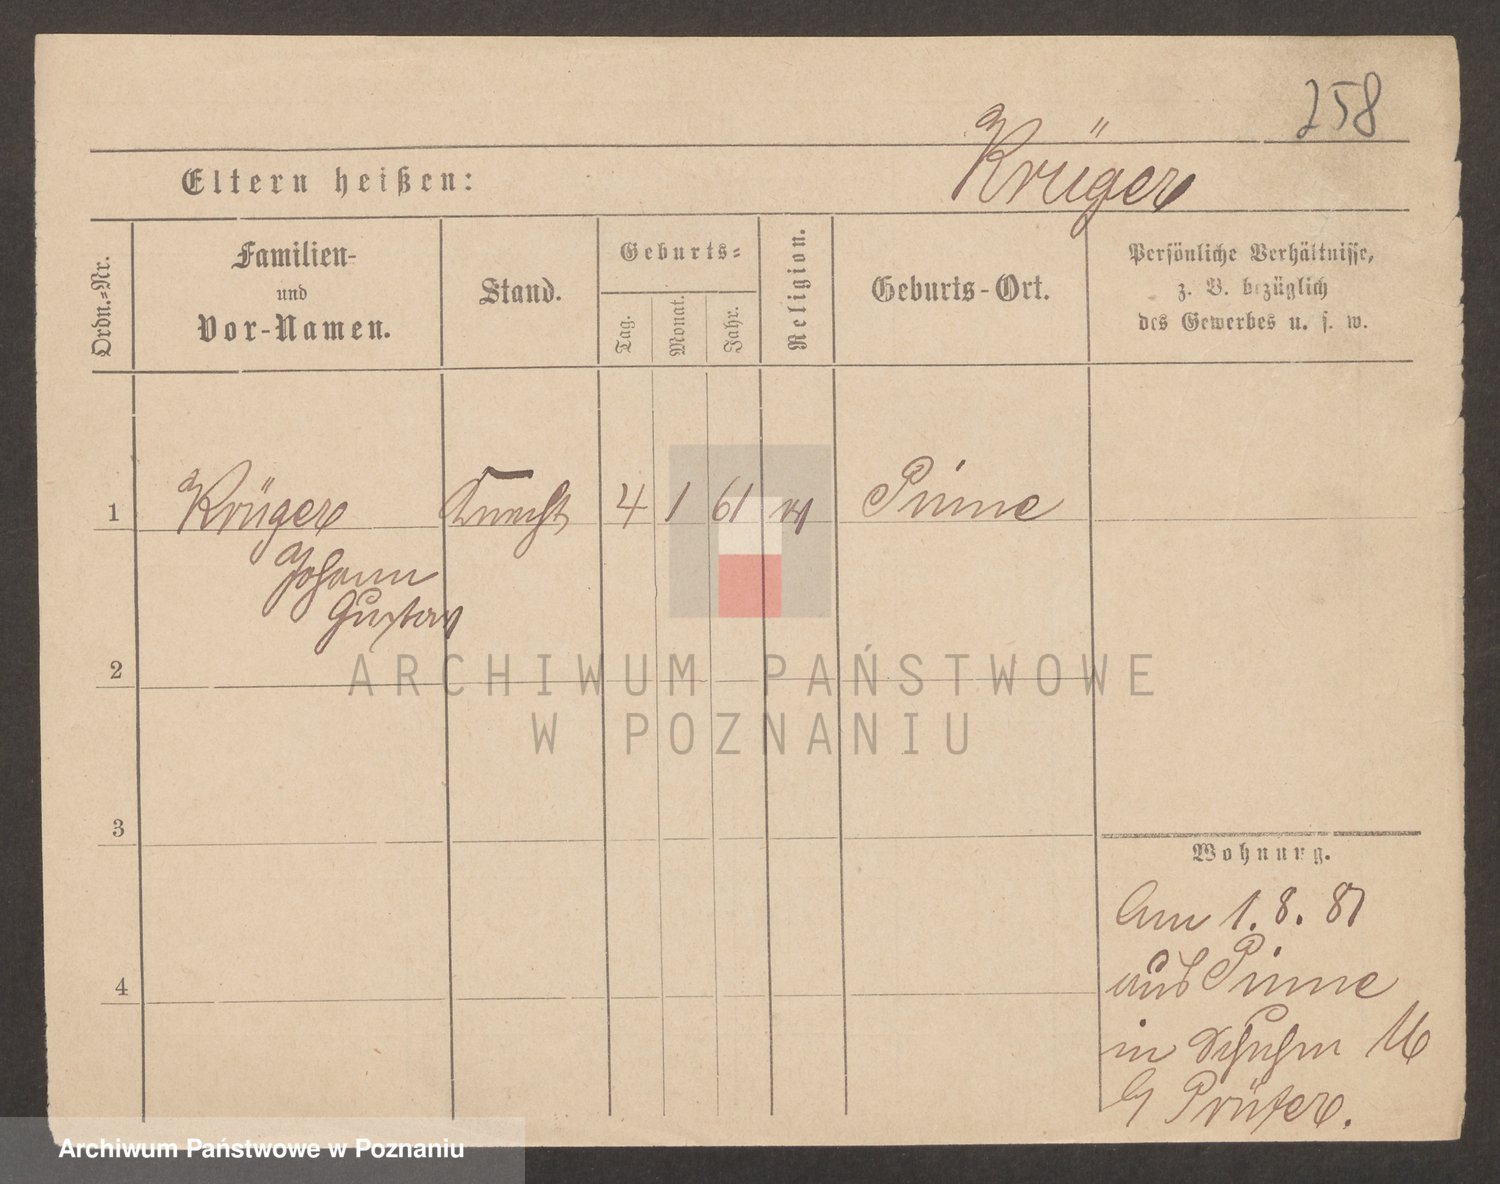 258
Krüger
Eltern heißen:
Ordn.-Nr.
Familien-
und
Vor-Namen.
Stand.
Geburts-
Tag.
Monat.
Jahr.
Religion.
Geburts-Ort.
Persönliche Verhältnisse,
z. B. bezüglich
des Gewerbes u. s. w.
1
Krüger
Johann
Gustav
Knecht
4
1
61
ev
Pinne
2
3
4
Wohnung.
Am 1. 8. 87
aus Pinne
in 16
Prüfer.
ARCHIWUM PAŃSTWOWE
W POZNANIU
Archiwum Państwowe w Poznaniu